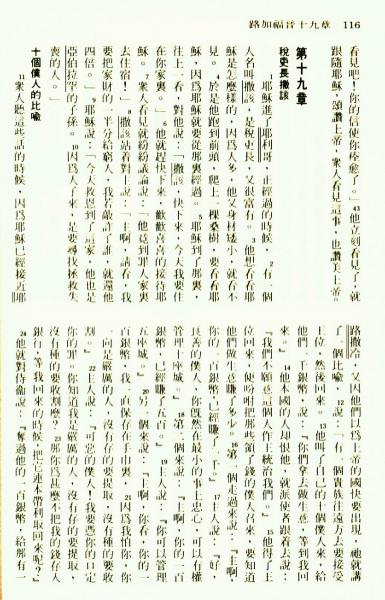 路加福音十九章 116
看見吧!你的信使你痊愈了。」43他立刻看見了,就
跟隨耶穌,頌讚上帝。衆人看見這事,也讚美上帝。
第十九章
稅吏長撒該
1耶穌進了耶利哥,正經過的時候,2有一個
人名叫撒該,是稅吏長,又很富有。3他想看看耶
穌是怎麼樣的,因爲人多,他又身材矮小,就看不
見。4於是他跑到前頭,爬上一棵桑樹,要看看耶
穌,因爲耶穌就要從那裏經過。5耶穌到了那裏,
往上一看,對他說:「撒該,快下來,今天我要住
在你家裏。」6他就趕快下來,歡歡喜喜的接待耶
穌。7衆人看見就紛紛議論說:「他竟到罪人家裏
去住宿!」8撒該站着對主說:「主啊,請看,我
要把家財的一半分給窮人,我若敲詐了誰,就還他
四倍。」9耶穌說:「今天救恩到了這家,他也是
亞伯拉罕的子孫。10因爲人子來,是要尋找拯救失
喪的人。」
十個僕人的比喩
11衆人聽這些話的時候,因爲耶穌已經接近耶
路撒冷,又因他們以爲上帝的國快要出現,祂就講
了一個比喩,12說:「有一個貴族往遠方去要接受
王位,然後回來。13他叫了自己的十個僕人來,給
他們一千銀幣,說:『你們拿去做生意,等到我回
來。』14他本國的人却恨他,就派使者跟着去說:
『我們不願意這個人作王統治我們。』15他得了王
位回來,便吩咐把那些領了錢的僕人召來,要知道
他們做生意賺了多少。16第一個走過來說:『主啊,
你的一百銀幣,已經賺了一千。』17主人說:『好,
良善的僕人,你旣然在最小的事上忠心,可以有權
管理十座城。』18第二個來說:『主啊,你的一百
銀幣,已賺了五百。』19主人說:『你可以管理
五座城。』20另一個來說:『主啊,你看,你的一
百銀幣,我一直保存在手巾裏,21因爲我怕你,你
一向是嚴厲的人,沒有存的要提取,沒有種的要收
割。』22主人說:『可惡的僕人!我要憑你的口定
你的罪。你知道我是嚴厲的人,沒有存的要提取,
沒有種的要收割麼?23那你爲甚麼不把我的錢存入
銀行,等我回來的時候,把它連本帶利取回來呢?』
24他就對侍衞說:『奪過他的一百銀幣,給那有一